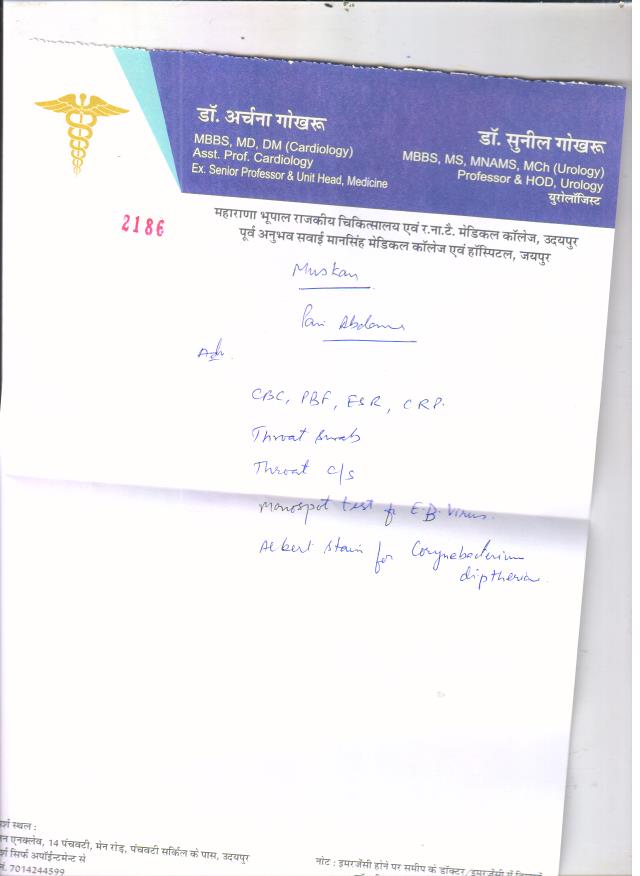 डॉ. अर्चना गोखरू
MBBS, MD, DM (Cardiology)
Asst. Prof. Cardiology
Ex. Senior Professor & Unit Head, Medicine
डॉ. सुनील गोखरू
MBBS, MS, MNAMS, MCh (Urology)
Professor & HOD, Urology
युरोलॉजिस्ट
महाराणा भूपाल राजकीय चिकित्सालय एवं र.ना.टै. मेडिकल कॉलेज, उदयपुर
पूर्व अनुभव सवाई मानसिंह मेडिकल कॉलेज एवं हॉस्पिटल, जयपुर
2186
Muskan
Adv.
CBC, PBF, ESR, CRP.
Throat swab
Throat c/s
Monospot test for E.B. Virus.
Albert Stain for Corynebacterium
diptheria.
स्थल :
एनक्लेव, 14 पंचवटी, मेन रोड, पंचवटी सर्किल के पास, उदयपुर
सिर्फ अपॉईन्टमेन्ट से
7014244599
नोट : इमरजेंसी होने पर समीप के डॉक्टर/इमरजेंसी में